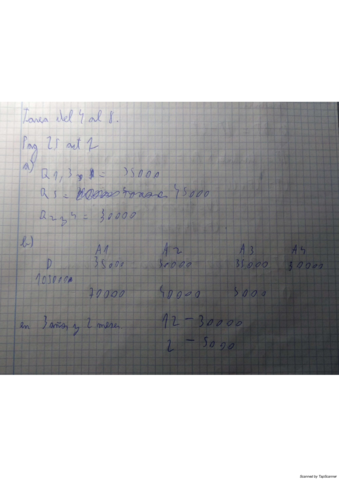 Tarea del 4 al 8.
Pag 25 act 2
a)
Q1, 3 y = 35000
Q5 = 45000
Q2 y 4 = 30000
b)
A1 A2 A3 A4
D 35000 30000 35000 30000
105000
70000 40000 5000
en 3 años y 2 meses. 12 - 30000
2 - 5000